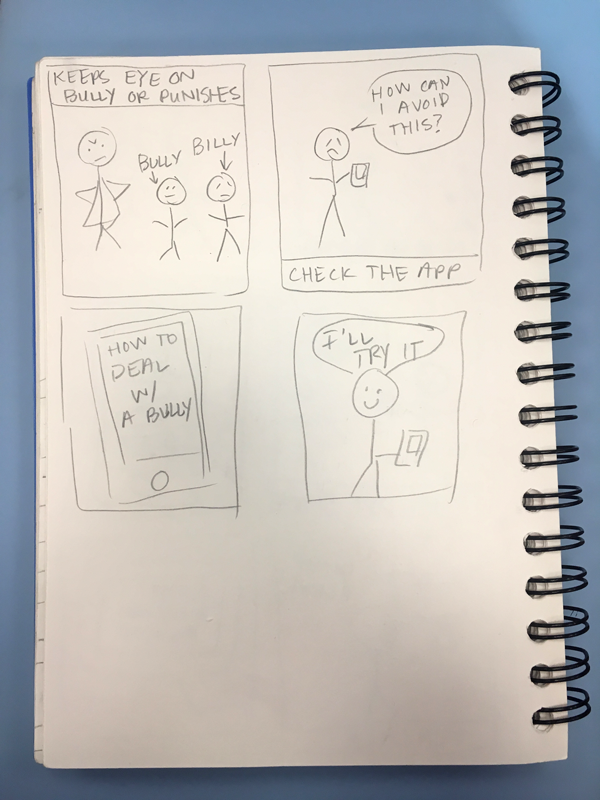 KEEPS EYE ON
BULLY OR PUNISHES
BULLY
BILLY
HOW CAN
I AVOID
THIS?
CHECK THE APP
HOW TO
DEAL
W/
A BULLY
I'LL
TRY IT